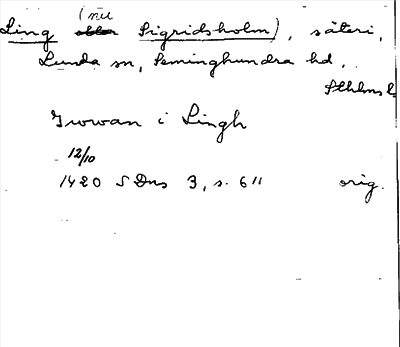 Ling (nu Sigridsholm), säteri,
Lunda sn, Seminghundra hd,
Sthlms l.
Ivwan i Lingh
12/10
1420 SDns 3, s. 611 orig.